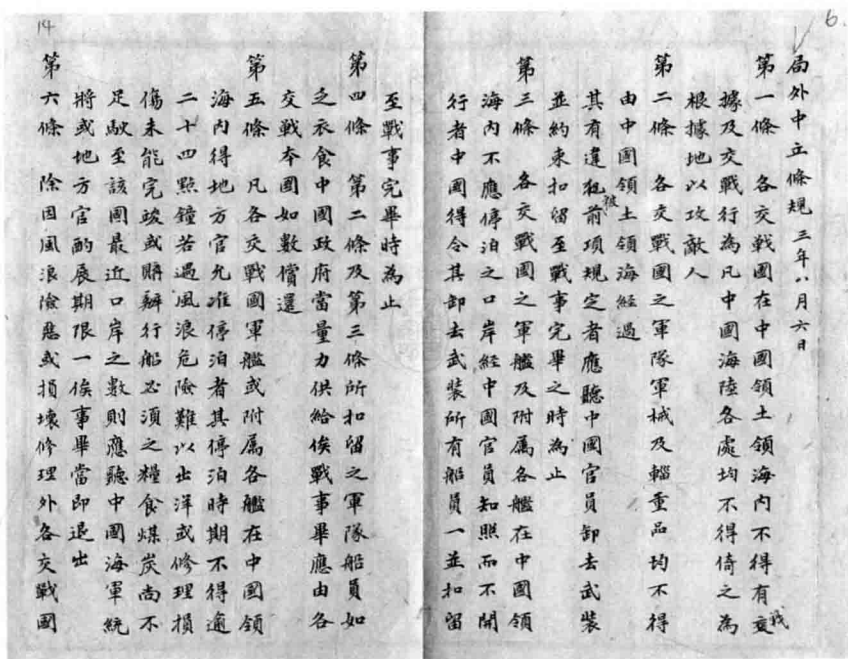 6.
局外中立條規 三年八月六日
第一條 各交戰國在中國領土領海內不得有佔
據及交戰行為凡中國海陸各處均不得倚之為
根據地以攻敵人
第二條 各交戰國之軍隊軍械及輜重品均不得
由中國領土領海經過
其有違犯前項規定者應聽中國官員卸去武裝
並約束扣留至戰事完畢之時為止
第三條 各交戰國之軍艦及附屬各艦在中國領
海內不應停泊之口岸經中國官員知照而不開
行者中國得令其卸去武裝所有船員一並扣留
14
至戰事完畢時為止
第四條 第二條及第三條所扣留之軍隊船員如
乏衣食中國政府當量力供給俟戰事畢應由各
交戰本國如數償還
第五條 凡各交戰國軍艦或附屬各艦在中國領
海內得地方官允准停泊者其停泊時期不得逾
二十四點鐘若遇風浪危險難以出洋或修理損
傷未能完竣或購辦行船必須之糧食煤炭尚不
足駛至該國最近口岸之數則應聽中國海軍統
將或地方官酌展期限一俟事畢當即退出
第六條 除因風浪險惡或損壞修理外各交戰國